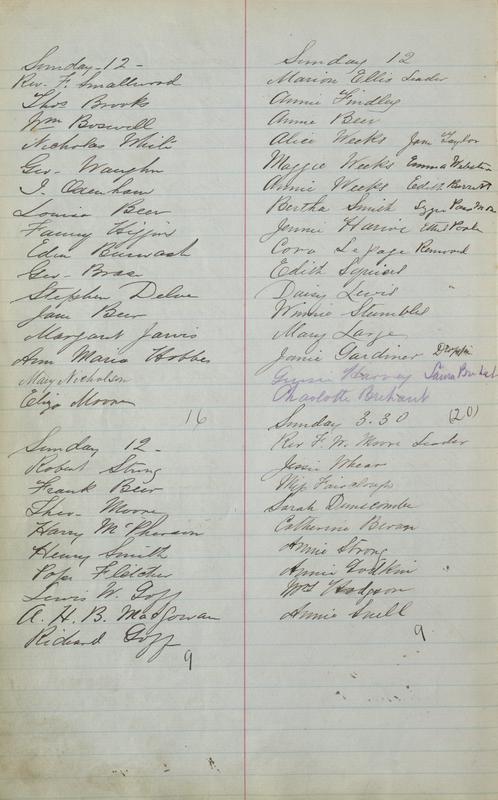 Sunday - 12 -
Rev. F. Smallwood
Thos Brooks
Wm Boswell
Nicholas White
Geo. Vaughn
I. Oxenham
Louisa Beer
Fanny Higgins
Eden Burwash
Geo. Brace
Stephen Delve
Jane Beer
Margaret Jarvis
Ann Maria Hobbes
Mary Nicholson
Eliza Moore
16
Sunday 12 -
Robert Strong
Frank Beer
Theo. Moore
Harry McPherson
Henry Smith
Pope Fletcher
Lewis W. Goff
A. H. B. MacGowan
Richard Goff
9
Sunday 12
Marion Ellis Leader
Annie Findley
Annie Beer
Alice Weeks Jane Taylor
Maggie Weeks Emma Webster
Annie Weeks Edith
Bertha Smith
Jennie Ethel
Cora LePage Removed
Edith Squires
Daisy Lewis "
Winnie Stumbles
Mary Large
Janie Gardiner
Harvey Laura
Charlotte
Sunday 3.30 (20)
Rev F. W. Moore Leader
Jessie Whear
Miss Fairclough
Sarah Dunscombe
Catherine Bevan
Annie Strong
Annie Godkin
Mrs Hodgson
Annie Snell
9